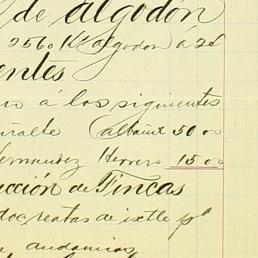 de algodón
2560 Kl algodon á 2d
entes
á los siguientes
Albañil 50 00
Hernandez Herrero 15 00
ucción de Fincas
doc reatas de ixtle pa
andamios